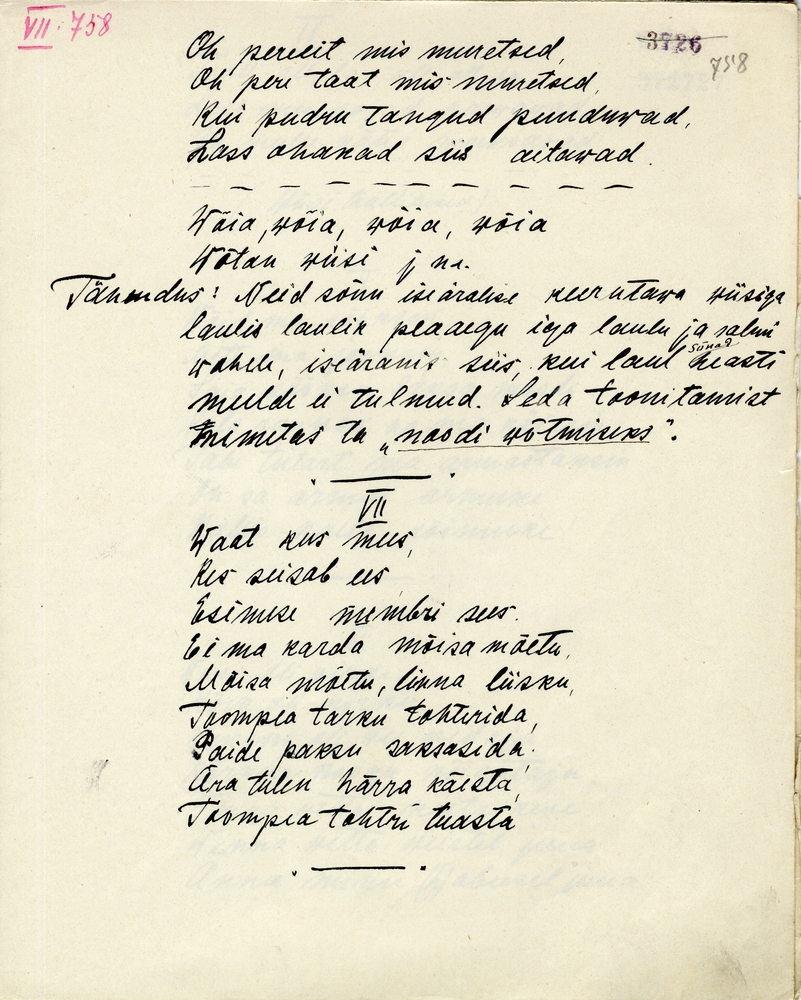 VII. 758
3726
758
Oh pereeit mis muretsed,
Oh pere taat mis muretsed,
Kui pudru tangud punduwad,
Lass ohakad siis aitawad.
Wõia, wõia, wõia, wõia
Wõtan wiisi j. n. e.
Tähendus: Neid sõnu iseäralise keerutawa wiisiga
laulis laulik peaaegu iga laulu ja salmi
wahele, iseäranis siis, kui laul sõnad heasti
meelde ei tulnud. Seda toonitamist
nimetas ta „noodi wõtmiseks".
VII
Waat kus mees,
Kes seisab ees
Esimese numbri sees.
Ei ma karda mõisa mõetu,
Mõisa mõttu, linna liisku,
Toompea tarku tohterida,
Paide paksu saksasida.
Ära tulen härra käesta,
Toompea tohtri tuasta